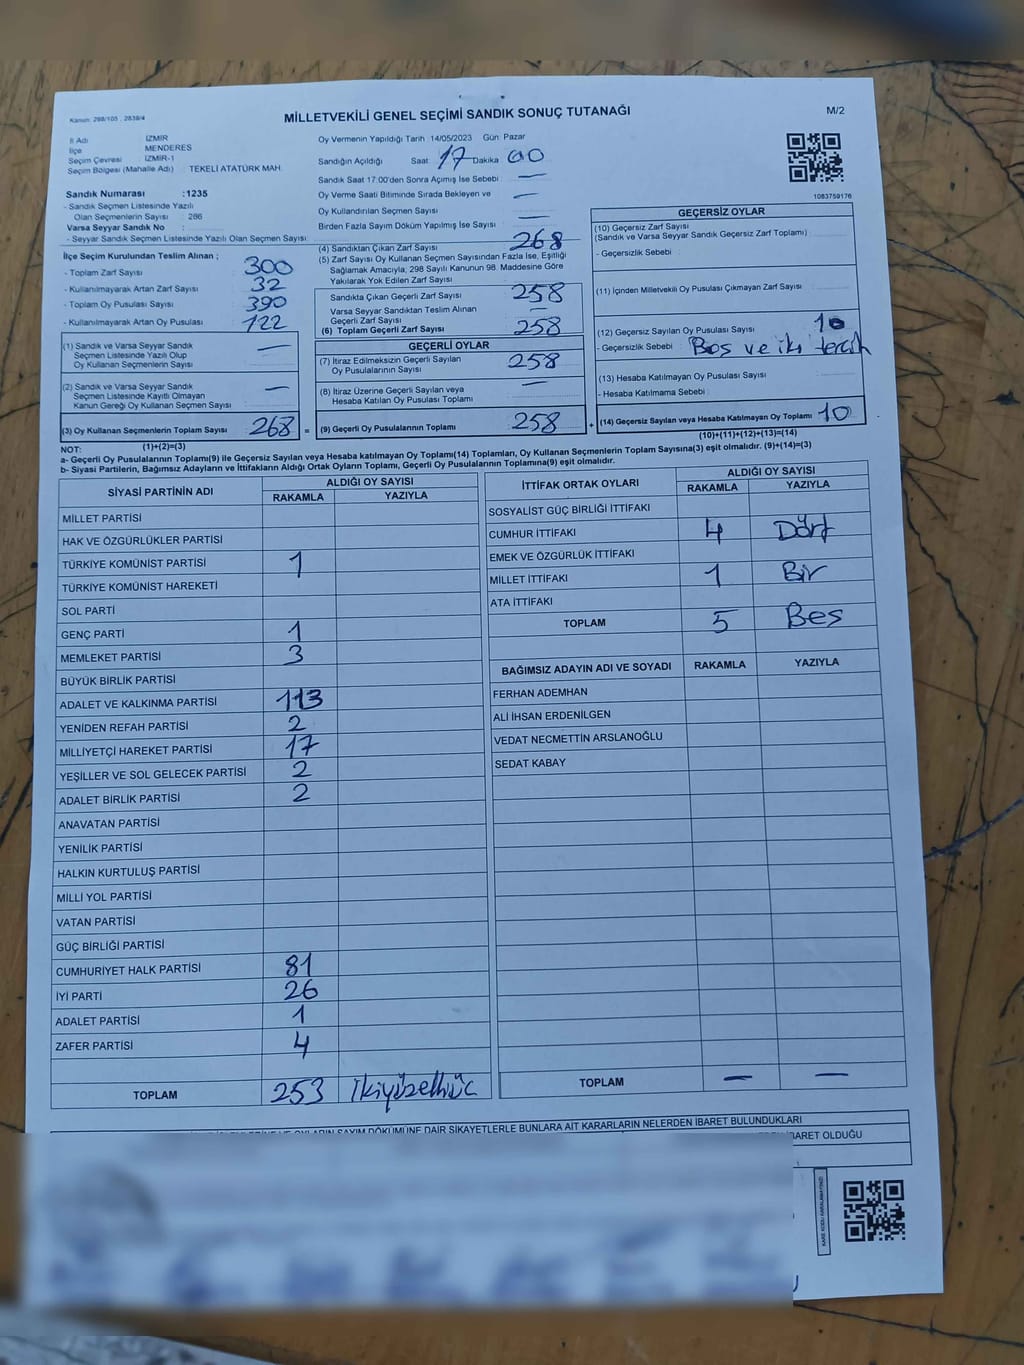 Kanun: 298/105 , 2839/4
MİLLETVEKİLİ GENEL SEÇİMİ SANDIK SONUÇ TUTANAĞI
M/2
İl Adı İZMİR
İlçe MENDERES
Seçim Çevresi : İZMİR-1
Seçim Bölgesi (Mahalle Adı) : TEKELİ ATATÜRK MAH.
Sandık Numarası : 1235
- Sandık Seçmen Listesinde Yazılı
Olan Seçmenlerin Sayısı : 286
Varsa Seyyar Sandık No :
- Seyyar Sandık Seçmen Listesinde Yazılı Olan Seçmen Sayısı:
Oy Vermenin Yapıldığı Tarih 14/05/2023 Gün: Pazar
Sandığın Açıldığı Saat: 17 Dakika 00
Sandık Saat 17:00'den Sonra Açımış İse Sebebi : —
Oy Verme Saati Bitiminde Sırada Bekleyen ve —
Oy Kullandırılan Seçmen Sayısı
Birden Fazla Sayım Döküm Yapılmış İse Sayısı : —
1083759176
İlçe Seçim Kurulundan Teslim Alınan ;
- Toplam Zarf Sayısı : 300
- Kullanılmayarak Artan Zarf Sayısı : 32
- Toplam Oy Pusulası Sayısı : 390
- Kullanılmayarak Artan Oy Pusulası : 122
(1) Sandık ve Varsa Seyyar Sandık —
Seçmen Listesinde Yazılı Olup
Oy Kullanan Seçmen Sayısı
(2) Sandık ve Varsa Seyyar Sandık —
Seçmen Listesinde Kayıtlı Olmayan
Kanun Gereği Oy Kullanan Seçmen Sayısı
(3) Oy Kullanan Seçmenlerin Toplam Sayısı 268 =
(1)+(2)=(3)
(4) Sandıktan Çıkan Zarf Sayısı 268
(5) Zarf Sayısı Oy Kullanan Seçmen Sayısından Fazla İse, Eşitliği
Sağlamak Amacıyla; 298 Sayılı Kanunun 98. Maddesine Göre
Yakılarak Yok Edilen Zarf Sayısı
Sandıkta Çıkan Geçerli Zarf Sayısı 258
Varsa Seyyar Sandıktan Teslim Alınan —
Geçerli Zarf Sayısı
(6) Toplam Geçerli Zarf Sayısı 258
GEÇERLİ OYLAR
(7) İtiraz Edilmeksizin Geçerli Sayılan 258
Oy Pusulalarının Sayısı
(8) İtiraz Üzerine Geçerli Sayılan veya —
Hesaba Katılan Oy Pusulası Toplamı
(9) Geçerli Oy Pusulalarının Toplamı 258 +
GEÇERSİZ OYLAR
(10) Geçersiz Zarf Sayısı
(Sandık ve Varsa Seyyar Sandık Geçersiz Zarf Toplamı)
- Geçersizlik Sebebi :
(11) İçinden Milletvekili Oy Pusulası Çıkmayan Zarf Sayısı
(12) Geçersiz Sayılan Oy Pusulası Sayısı 10
- Geçersizlik Sebebi : Bos ve iki tercih
(13) Hesaba Katılmayan Oy Pusulası Sayısı
- Hesaba Katılmama Sebebi :
(14) Geçersiz Sayılan veya Hesaba Katılmayan Oy Toplamı 10
(10)+(11)+(12)+(13)=(14)
NOT:
a- Geçerli Oy Pusulalarının Toplamı(9) ile Geçersiz Sayılan veya Hesaba katılmayan Oy Toplamı(14) Toplamları, Oy Kullanan Seçmenlerin Toplam Sayısına(3) eşit olmalıdır. (9)+(14)=(3)
b- Siyasi Partilerin, Bağımsız Adayların ve İttifakların Aldığı Ortak Oyların Toplamı, Geçerli Oy Pusulalarının Toplamına(9) eşit olmalıdır.
SİYASİ PARTİNİN ADI ALDIĞI OY SAYISI
RAKAMLA YAZIYLA
MİLLET PARTİSİ
HAK VE ÖZGÜRLÜKLER PARTİSİ
TÜRKİYE KOMÜNİST PARTİSİ 1
TÜRKİYE KOMÜNİST HAREKETİ
SOL PARTİ
GENÇ PARTİ 1
MEMLEKET PARTİSİ 3
BÜYÜK BİRLİK PARTİSİ
ADALET VE KALKINMA PARTİSİ 113
YENİDEN REFAH PARTİSİ 2
MİLLİYETÇİ HAREKET PARTİSİ 17
YEŞİLLER VE SOL GELECEK PARTİSİ 2
ADALET BİRLİK PARTİSİ 2
ANAVATAN PARTİSİ
YENİLİK PARTİSİ
HALKIN KURTULUŞ PARTİSİ
MİLLİ YOL PARTİSİ
VATAN PARTİSİ
GÜÇ BİRLİĞİ PARTİSİ
CUMHURİYET HALK PARTİSİ 81
İYİ PARTİ 26
ADALET PARTİSİ 1
ZAFER PARTİSİ 4
TOPLAM 253 İkiyüzelliüc
İTTİFAK ORTAK OYLARI ALDIĞI OY SAYISI
RAKAMLA YAZIYLA
SOSYALİST GÜÇ BİRLİĞİ İTTİFAKI
CUMHUR İTTİFAKI 4 Dört
EMEK VE ÖZGÜRLÜK İTTİFAKI
MİLLET İTTİFAKI 1 Bir
ATA İTTİFAKI
TOPLAM 5 Bes
BAĞIMSIZ ADAYIN ADI VE SOYADI RAKAMLA YAZIYLA
FERHAN ADEMHAN
ALİ İHSAN ERDENİLGEN
VEDAT NECMETTİN ARSLANOĞLU
SEDAT KABAY
TOPLAM — —
OYLARIN SAYIM DÖKÜMÜNE DAİR ŞİKAYETLERLE BUNLARA AİT KARARLARIN NELERDEN İBARET BULUNDUKLARI
İBARET OLDUĞU